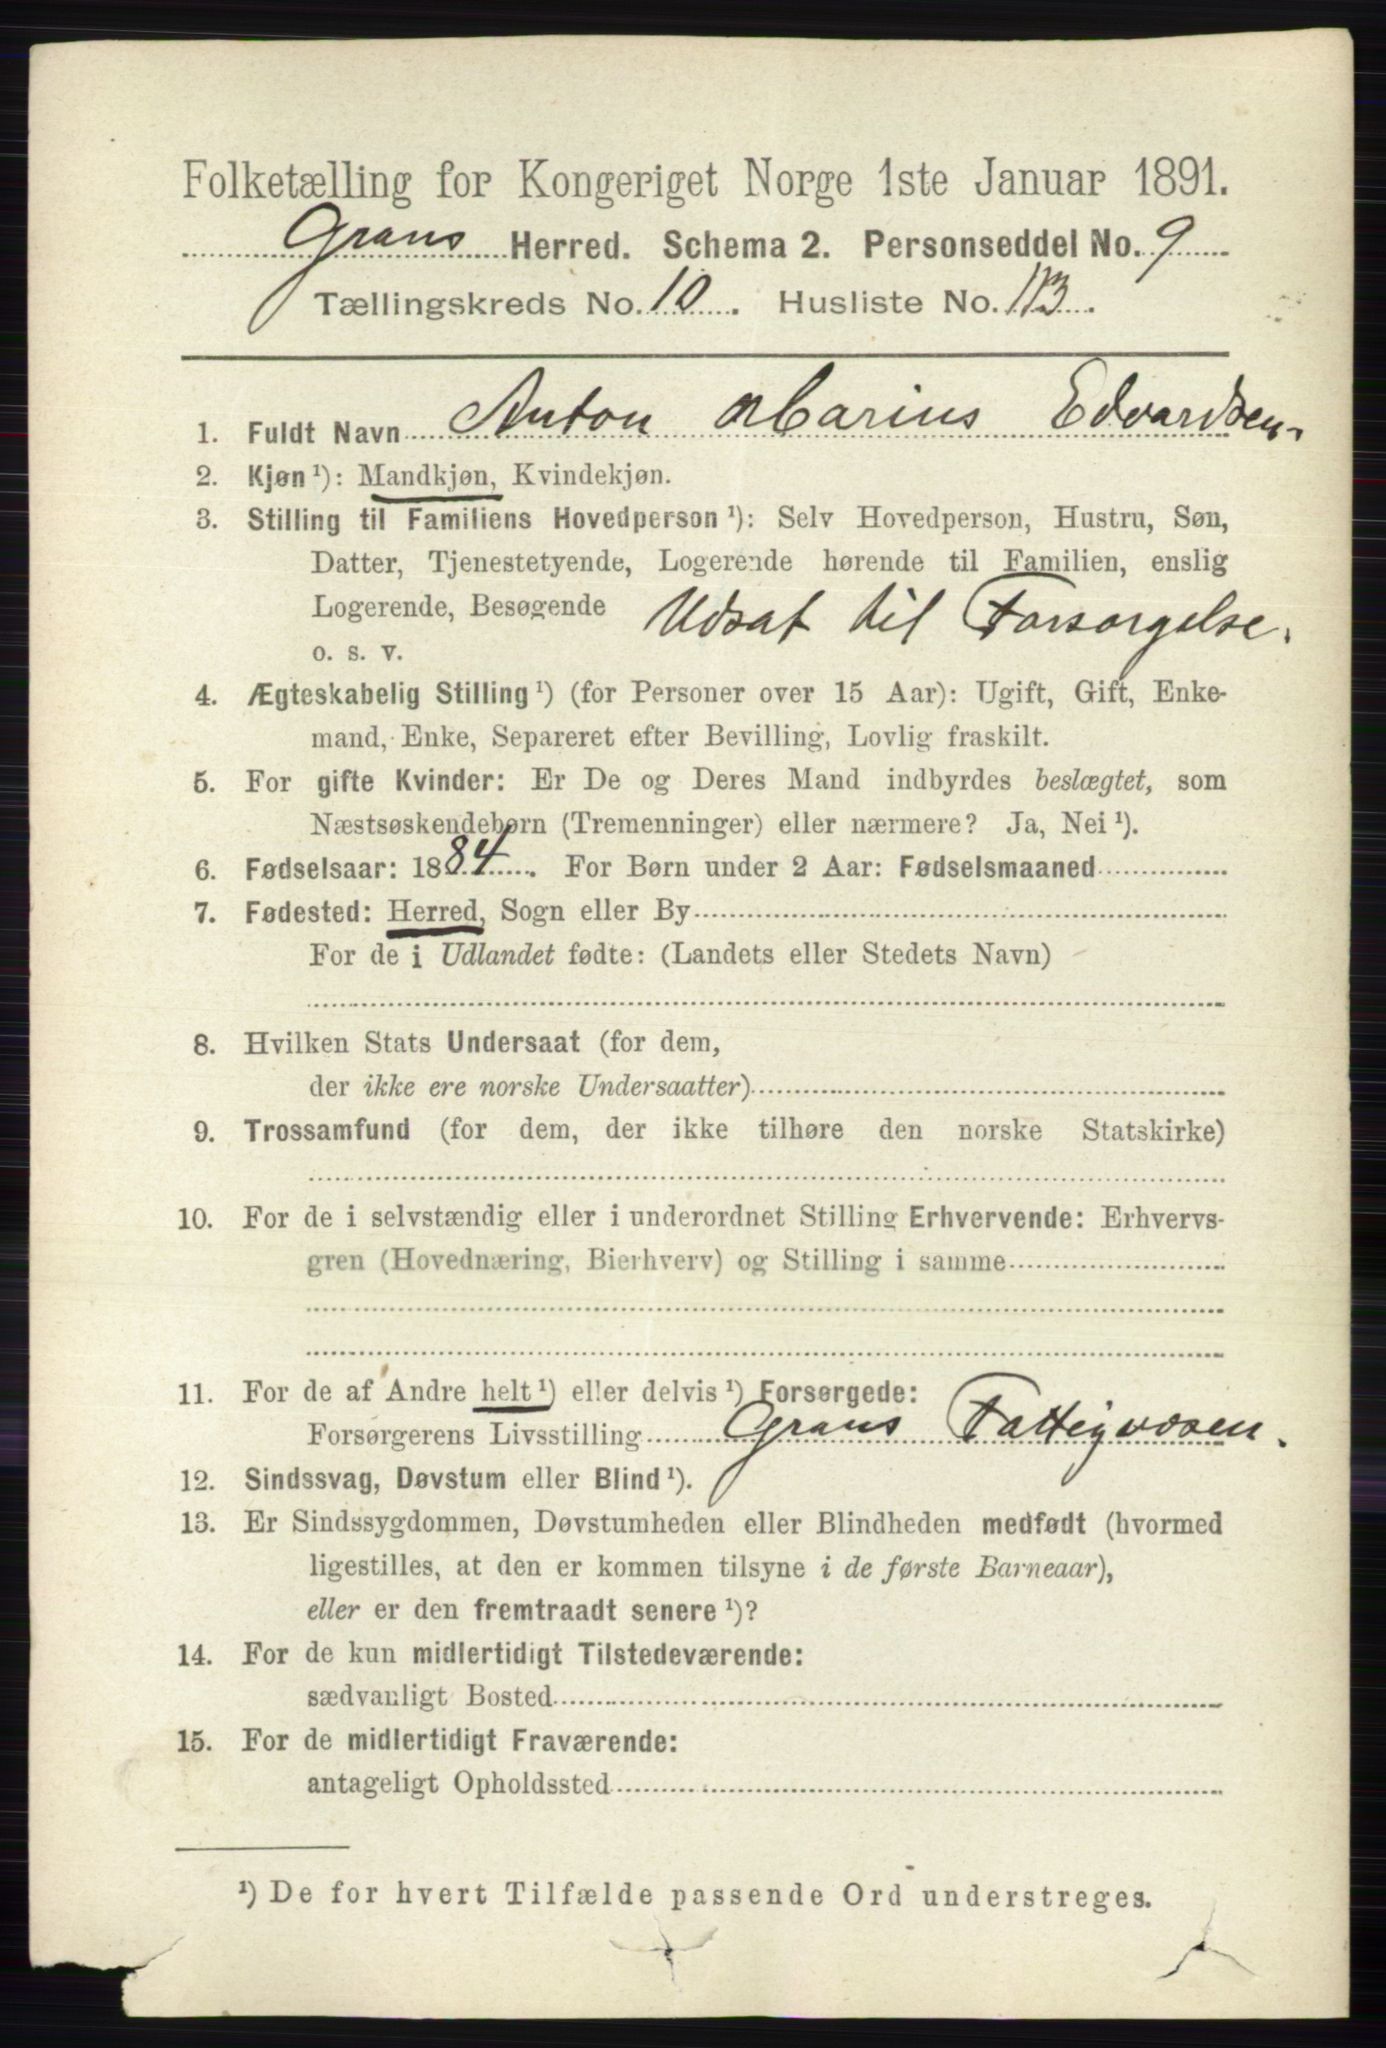 Folketælling for Kongeriget Norge 1ste Januar 1891.
Grans Herred. Schema 2. Personseddel No. 9
Tællingskreds No. 10. Husliste No. 113.
1. Fuldt Navn Anton Marius Edvardsen.
2. Kjøn ¹): Mandkjøn, Kvindekjøn.
3. Stilling til Familiens Hovedperson ¹): Selv Hovedperson, Hustru, Søn,
Datter, Tjenestetyende, Logerende hørende til Familien, enslig
Logerende, Besøgende Udsat til Forsørgelse.
o. s. v.
4. Ægteskabelig Stilling ¹) (for Personer over 15 Aar): Ugift, Gift, Enke-
mand, Enke, Separeret efter Bevilling, Lovlig fraskilt.
5. For gifte Kvinder: Er De og Deres Mand indbyrdes beslægtet, som
Næstsøskendebørn (Tremenninger) eller nærmere? Ja, Nei ¹).
6. Fødselsaar: 1884. For Børn under 2 Aar: Fødselsmaaned
7. Fødested: Herred, Sogn eller By
For de i Udlandet fødte: (Landets eller Stedets Navn)
8. Hvilken Stats Undersaat (for dem,
der ikke ere norske Undersaatter)
9. Trossamfund (for dem, der ikke tilhøre den norske Statskirke)
10. For de i selvstændig eller i underordnet Stilling Erhvervende: Erhvervs-
gren (Hovednæring, Bierhverv) og Stilling i samme
11. For de af Andre helt ¹) eller delvis ¹) Forsørgede:
Forsørgerens Livsstilling Grans Fattigvæsen.
12. Sindssvag, Døvstum eller Blind ¹).
13. Er Sindssygdommen, Døvstumheden eller Blindheden medfødt (hvormed
ligestilles, at den er kommen tilsyne i de første Barneaar),
eller er den fremtraadt senere ¹)?
14. For de kun midlertidigt Tilstedeværende:
sædvanligt Bosted
15. For de midlertidigt Fraværende:
antageligt Opholdssted
¹) De for hvert Tilfælde passende Ord understreges.